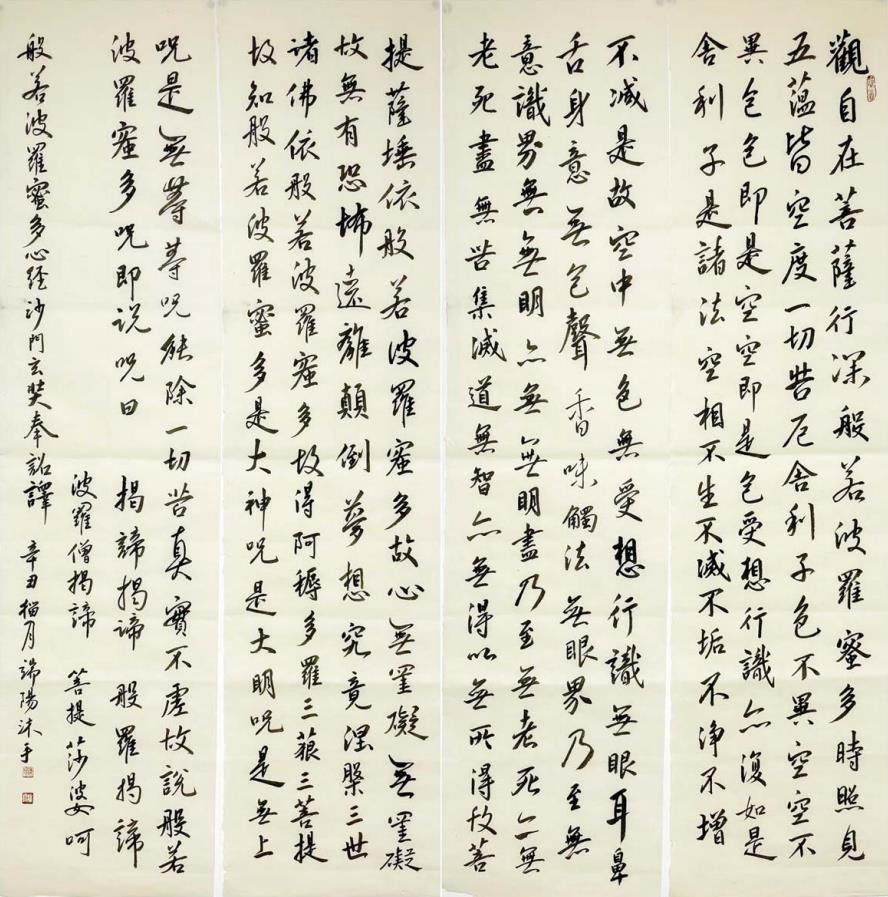 觀自在菩薩行深般若波羅蜜多時照見
五蘊皆空度一切苦厄舍利子色不異空空不
異色色即是空空即是色受想行識亦復如是
舍利子是諸法空相不生不滅不垢不淨不增
不減是故空中無色無受想行識無眼耳鼻
舌身意無色聲香味觸法無眼界乃至無
意識界無無明亦無無明盡乃至無老死亦無
老死盡無苦集滅道無智亦無得以無所得故菩
提薩埵依般若波羅蜜多故心無罣礙無罣礙
故無有恐怖遠離顛倒夢想究竟涅槃三世
諸佛依般若波羅蜜多故得阿耨多羅三藐三菩提
故知般若波羅蜜多是大神咒是大明咒是無上
咒是無等等咒能除一切苦真實不虛故說般若
波羅蜜多咒即说咒曰 揭諦揭諦 般羅揭諦
波羅僧揭諦 菩提莎婆呵
般若波羅蜜多心經沙門玄奘奉詔譯 辛丑榴月端陽沐手